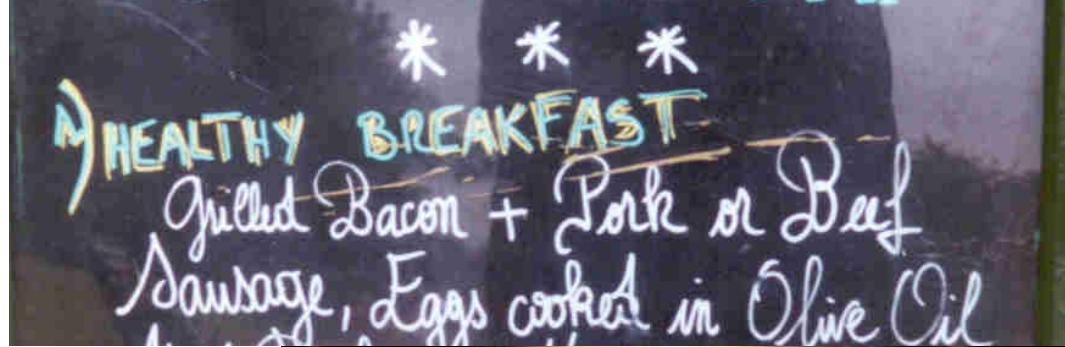 * * *
HEALTHY BREAKFAST
Grilled Bacon + Pork or Beef
Sausage, Eggs cooked in Olive Oil